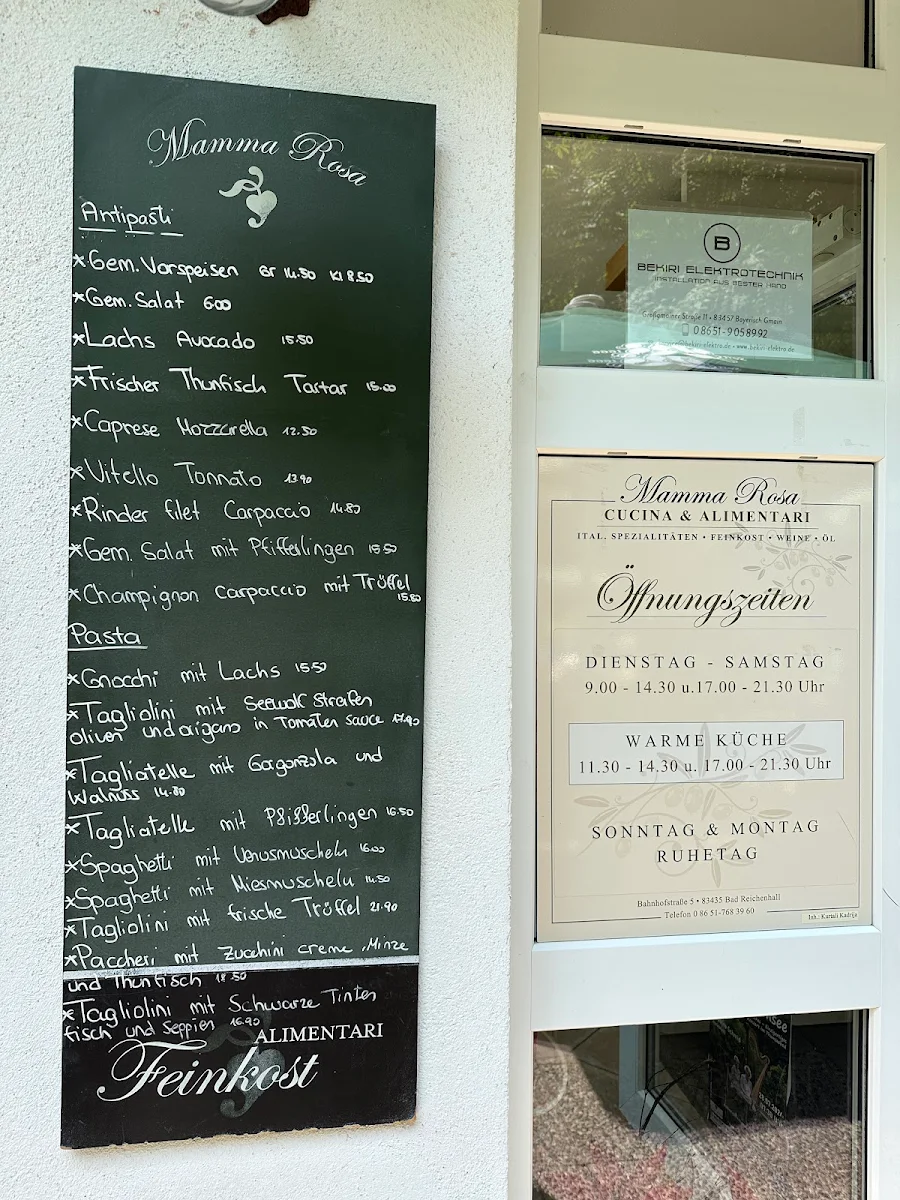 Mamma Rosa
Antipasti
*Gem. Vorspeisen Gr 14.50 Kl 8.50
*Gem. Salat 600
*Lachs Avocado 15.50
*Frischer Thunfisch Tartar 15.00
*Caprese Mozzarella 12.50
*Vitello Tonnato 13.90
*Rinder filet Carpaccio 14.80
*Gem. Salat mit Pfifferlingen 15.50
*Champignon Carpaccio mit Trüffel
15.80
Pasta
*Gnocchi mit Lachs 15.50
*Tagliolini mit Seewolf Streifen
oliven und origano in Tomaten sauce 17.90
*Tagliatelle mit Gorgonzola und
Walnuss 14.80
*Tagliatelle mit Pfifferlingen 16.50
*Spaghetti mit Venusmuscheln 16.00
*Spaghetti mit Miesmuscheln 14.50
*Tagliolini mit frische Trüffel 21.90
*Paccheri mit Zucchini creme, Minze
und Thunfisch 18.50
*Tagliolini mit Schwarze Tinten
fisch und Seppien 16.90
ALIMENTARI
Feinkost
B
BEKIRI ELEKTROTECHNIK
INSTALLATION AUS BESTER HAND
Großgmainer Straße 11 • 83457 Bayerisch Gmain
08651-9058992
@bekiri-elektro.de • www.bekiri-elektro.de
Mamma Rosa
CUCINA & ALIMENTARI
ITAL. SPEZIALITÄTEN • FEINKOST • WEINE • ÖL
Öffnungszeiten
DIENSTAG - SAMSTAG
9.00 - 14.30 u.17.00 - 21.30 Uhr
WARME KÜCHE
11.30 - 14.30 u. 17.00 - 21.30 Uhr
SONNTAG & MONTAG
RUHETAG
Bahnhofstraße 5 • 83435 Bad Reichenhall
Telefon 0 86 51-768 39 60
Inh.: Kartali Kadrije